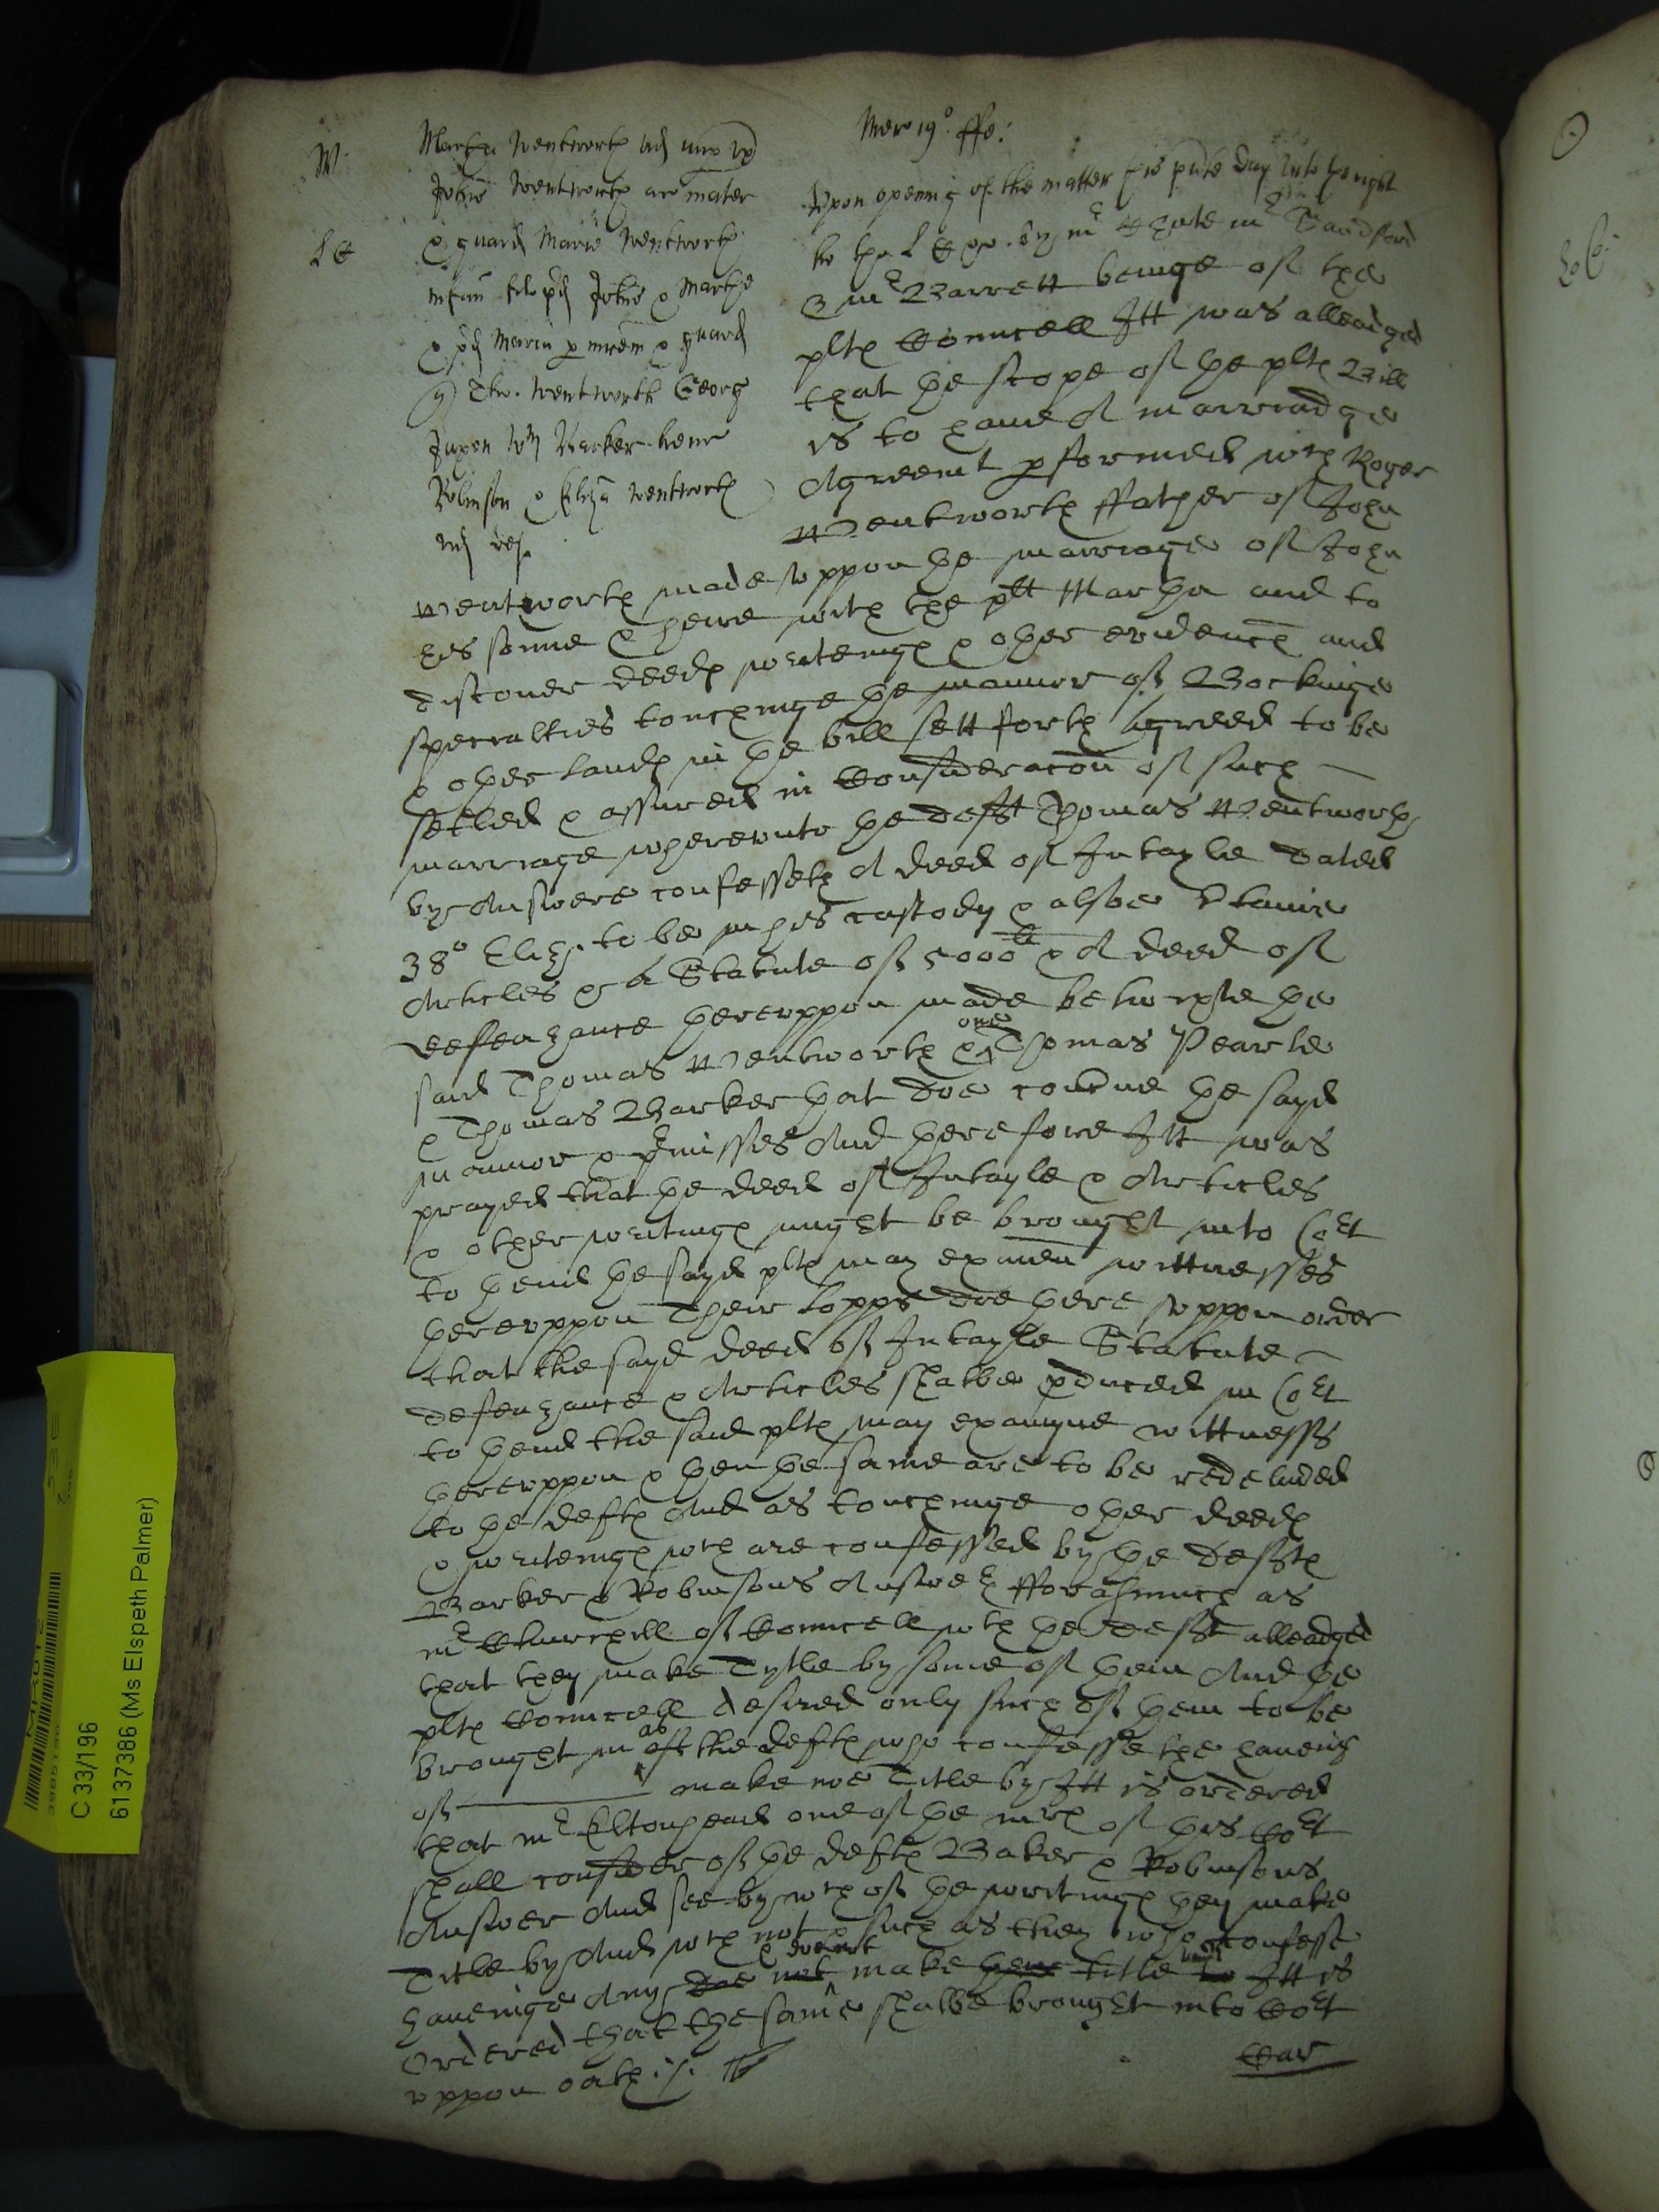 Merc 19º. ffe:
W.
L C
Martha Wentworth vid nup ux
Johis Wentworth ar mater
& guard Marie Wentworth
infan fil pd Johis & Marthe
& pd Maria p mrem & guard
q Tho. Wentworth George
Jupon Wm Barker henr
Robinson & Eliza Wentworth
vid def
Uppon opening of the matter this pnte day unto the right
ho the L C by mr White mr Dandford
& mr Barrett beinge of the
pltes Councell Itt was alleadged
that the scope of the pltes Bill
is to have A marriadge
Agreemt pformed wth Roger
Wentworth ffather of John
Wentworth made uppon the marriage of John
his sonne & heire with the plt Martha and to
discouer deedes writeinges & other evidences and
specialties touchinge the mannor of Bockinge
& other landes in the bill sett forth agreed to be
setled & assured in Consideracon of such
marriage whereunto the deft Thomas Wentworth
by Answere confesseth A deed of Intayle dated
38º Eliz. to be in his custody & alsoe
Articles & a Statute of 5000li & A deed of
deffeazance thereuppon made betwixte the
said Thomas Wentworth & one Thomas Pearle
& Thomas Barker that doe concrne the sayd
mannor & pmisses And therefore Itt was
prayed that the deed of Intayle & Articles
& other writinges might be brought into Cort
to thend the sayd pltes may examen wittnesses
thereuppon Their Lopps doe thereuppon order
that the sayd deed of Intayle Statute
defeazance & Articles shalbe pduced in Cort
to thend the said pltes may examyne wittnesses
thereuppon & then the same are to be redeliuered
to the deftes And as touchinge other deedes
& writeinges wch are confessed by the deftes
Barker & Robinsons Answer fforasmuch as
mr Churchill of Councell wth the deft alleadged
that they make Tytle by some of them And the
pltes Councell desired only such of them to be
brought in as of the deftes who confesse the haueing
of make noe Title by Itt is ordered
that mr Eltonhead one of the mrs of this Cort
shall consider of the deftes Baker & Robinsons
Answer And see by wch of the writinges they make
Title by And wch not & such as they who confesse
haueinge Any doe not & doe not make there title to Itt is
Ordered that the same shalbe brought into Cort
uppon oath ./.
Car
C 33/196
6137386 (Ms Elspeth Palmer)